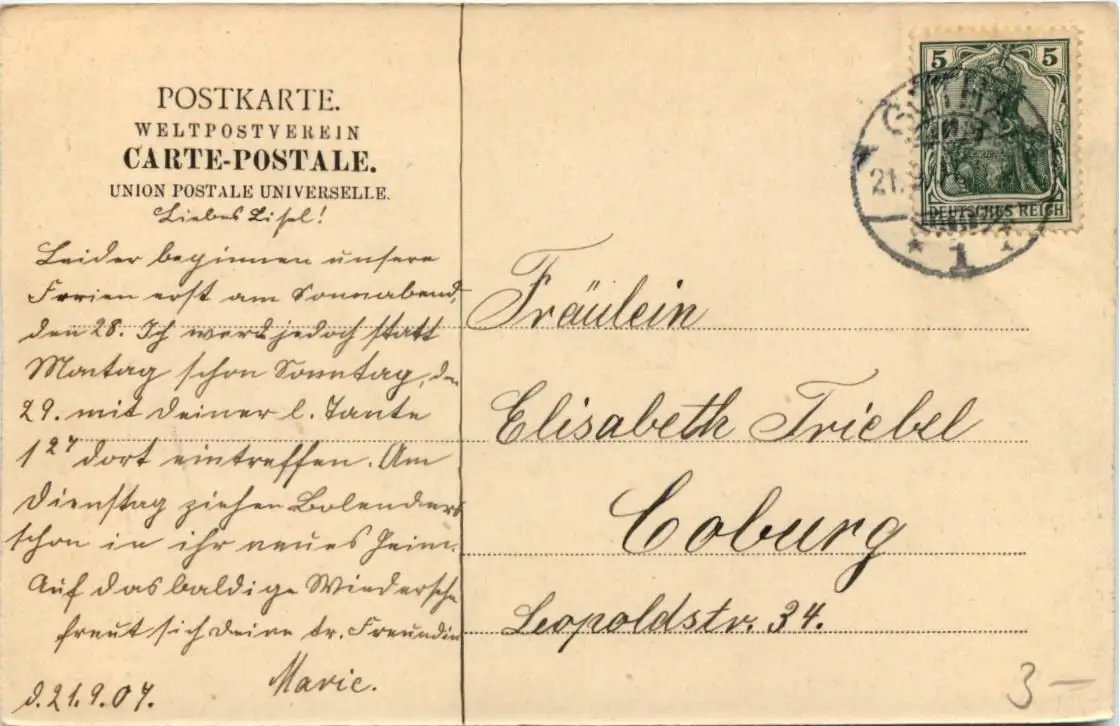 POSTKARTE.
WELTPOSTVEREIN
CARTE-POSTALE.
UNION POSTALE UNIVERSELLE.
Liebes Lisel!
Leider beginnen unsere
Ferien erst am Sonnabend,
den 28. Ich werd jedoch statt
Montag schon Sonntag, den
29. mit Deiner l. Tante
1²⁷ dort eintreffen. Am
Dienstag ziehen Bolenders
schon in ihr neues Heim.
Auf das baldige Wiedersehn
freut sich Deine tr. Freundin
Marie.
d. 21.9.07.
5 5
DEUTSCHES REICH
GOTHA
21.9.
* 1 *
Fräulein
Elisabeth Triebel
Coburg
Leopoldstr. 34.
3 –